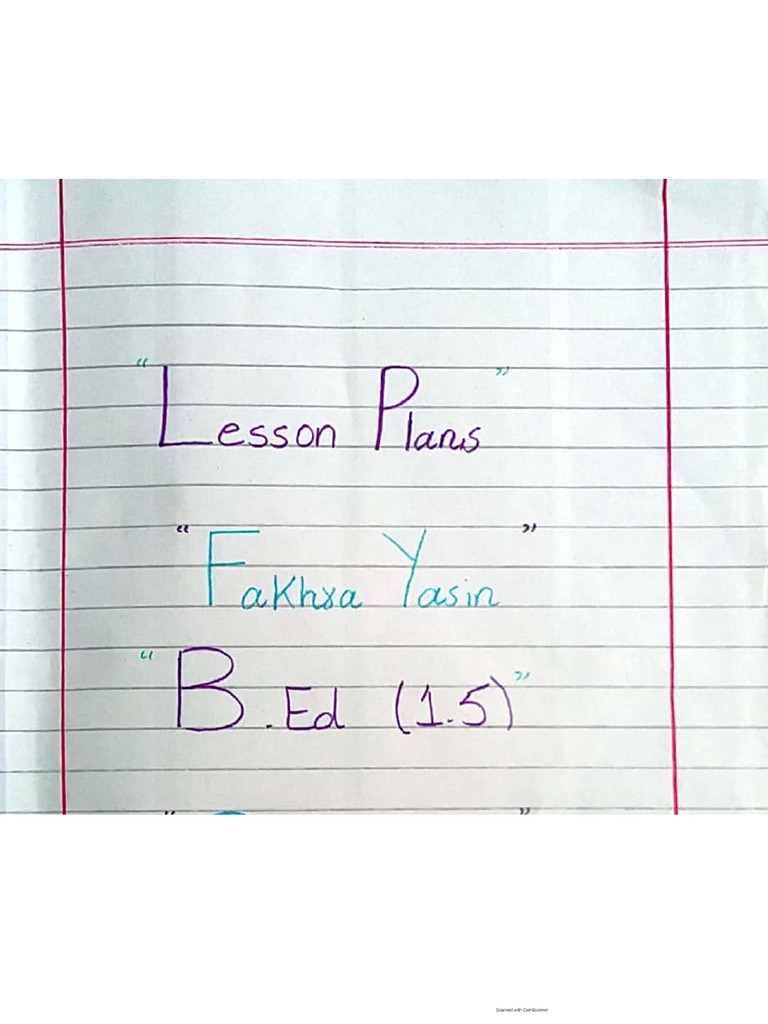 "Lesson Plans"
"Fakhra Yasin"
"B.Ed (1.5)"
" "
Scanned with CamScanner